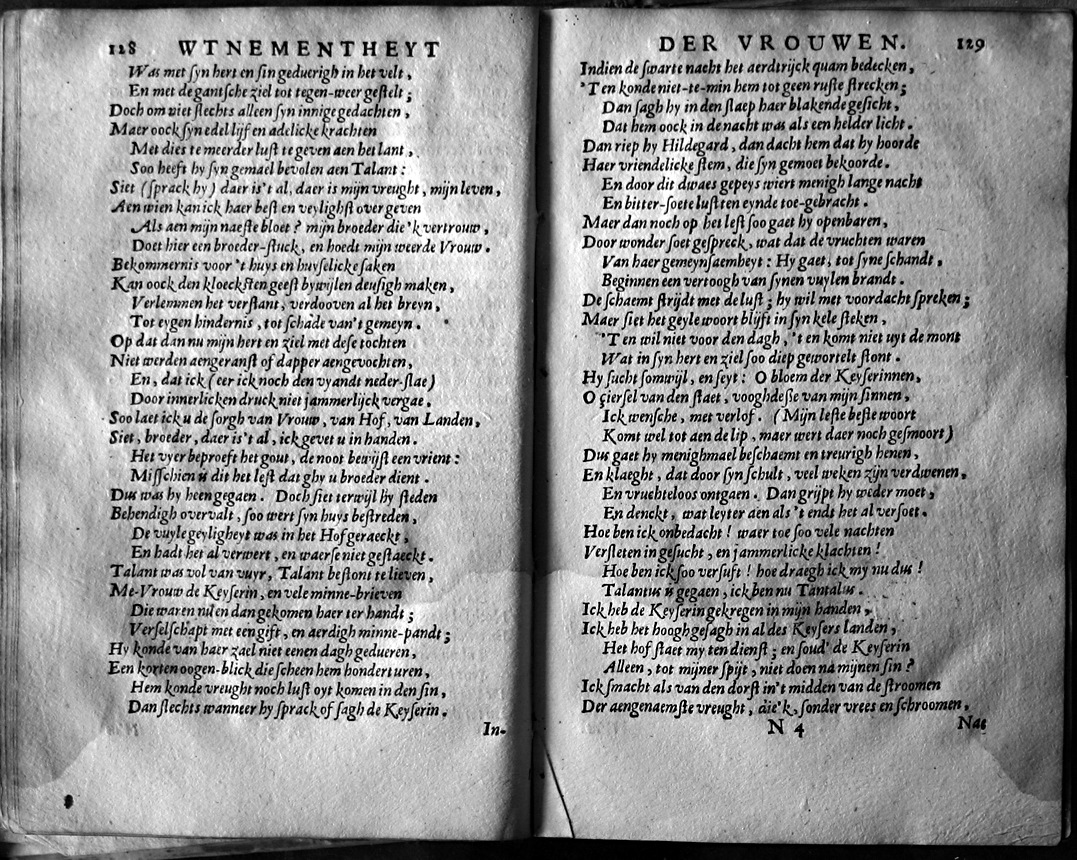 128 WTNEMENTHEYT
Was met ſyn hert en ſin geduerigh in het velt,
En met de gantſche ziel tot tegen-weer geſtelt;
Doch om niet ſlechts alleen ſyn innige gedachten,
Maer oock ſyn edel lijf en adelicke krachten
Met dies te meerder luſt te geven aen het lant,
Soo heeft hy ſyn gemael bevolen aen Talant:
Siet (ſprack hy) daer is't al, daer is mijn vreught, mijn leven,
Aen wien kan ick haer beſt en veylighſt over geven
Als aen mijn naeſte bloet? mijn broeder die 'k vertrouw,
Doet hier een broeder-ſtuck, en hoedt mijn weerde Vrouw.
Bekommernis voor 't huys en huyſelicke ſaken
Kan oock den kloeckſten geeſt bywijlen deuſigh maken,
Verlemmen het verſtant, verdooven al het breyn,
Tot eygen hindernis, tot ſchade van't gemeyn.
Op dat dan nu mijn hert en ziel met deſe tochten
Niet werden aengeranſt of dapper aengevochten,
En, dat ick (eer ick noch den vyandt neder-ſlae)
Door innerlicken druck niet jammerlijck vergae.
Soo laet ick u de ſorgh van Vrouw, van Hof, van Landen,
Siet, broeder, daer is't al, ick gevet u in handen.
Het vyer beproeft het gout, de noot bewijſt een vrient:
Miſſchien is dit het leſt dat ghy u broeder dient.
Dus was hy heen gegaen. Doch ſiet terwijl hy ſteden
Behendigh overvalt, ſoo wert ſyn huys beſtreden,
De vuyle geyligheyt was in het Hof geraeckt,
En hadt het al verwert, en waerſe niet geſtaeckt.
Talant was vol van vuyr, Talant beſtont te lieven,
Me-Vrouw de Keyſerin, en vele minne-brieven
Die waren nu en dan gekomen haer ter handt;
Verſelſchapt met een gift, en aerdigh minne-pandt;
Hy konde van haer zael niet eenen dagh gedueren,
Een korten oogen-blick die ſcheen hem hondert uren,
Hem konde vreught noch luſt oyt komen in den ſin,
Dan ſlechts wanneer hy ſprack of ſagh de Keyſerin.
In-
DER VROUWEN. 129
Indien de ſwarte nacht het aerdtrijck quam bedecken,
'Ten konde niet-te-min hem tot geen ruſte ſtrecken;
Dan ſagh hy in den ſlaep haer blakende geſicht,
Dat hem oock in de nacht was als een helder licht.
Dan riep hy Hildegard, dan dacht hem dat hy hoorde
Haer vriendelicke ſtem, die ſyn gemoet bekoorde.
En door dit dwaes gepeys wiert menigh lange nacht
En bitter-ſoete luſt ten eynde toe-gebracht.
Maer dan noch op het leſt ſoo gaet hy openbaren,
Door wonder ſoet geſpreck, wat dat de vruchten waren
Van haer gemeynſaemheyt: Hy gaet, tot ſyne ſchandt,
Beginnen een vertoogh van ſynen vuylen brandt.
De ſchaemt ſtrijdt met de luſt; hy wil met voordacht ſpreken;
Maer ſiet het geyle woort blijft in ſyn kele ſteken,
'Ten wil niet voor den dagh, 't en komt niet uyt de mont
Wat in ſyn hert en ziel ſoo diep gewortelt ſtont.
Hy ſucht ſomwijl, en ſeyt: O bloem der Keyſerinnen,
O çierſel van den ſtaet, vooghdeſſe van mijn ſinnen,
Ick wenſche, met verlof. (Mijn leſte beſte woort
Komt wel tot aen de lip, maer wert daer noch geſmoort)
Dus gaet hy menighmael beſchaemt en treurigh henen,
En klaeght, dat door ſyn ſchult, veel weken zijn verdwenen,
En vruchteloos ontgaen. Dan grijpt hy weder moet,
En denckt, wat leyter aen als 't endt het al verſoet.
Hoe ben ick onbedacht! waer toe ſoo vele nachten
Verſleten in geſucht, en jammerlicke klachten!
Hoe ben ick ſoo verſuft! hoe draegh ick my nu dus!
Talantus is gegaen, ick ben nu Tantalus.
Ick heb de Keyſerin gekregen in mijn handen,
Ick heb het hoogh geſagh in al des Keyſers landen,
Het hof ſtaet my ten dienſt; en ſoud' de Keyſerin
Alleen, tot mijner ſpijt, niet doen na mijnen ſin?
Ick ſmacht als van den dorſt in't midden van de ſtroomen
Der aengenaemſte vreught, die 'k, ſonder vrees en ſchroomen,
N 4 Nae